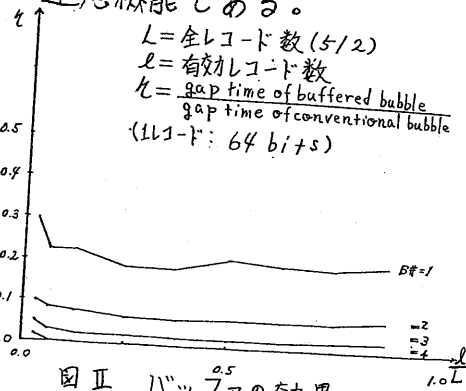 機能である。
η
L=全レコード数(512)
ℓ=有効レコード数
η=gap time of buffered bubble
gap time of conventional bubble
(1レコード: 64 bits)
0.5
0.4
0.3
0.2
0.1
0
B#=1
=2
=3
=4
0.0
0.5
1.0
ℓ/L
図Ⅱ バッファの効果